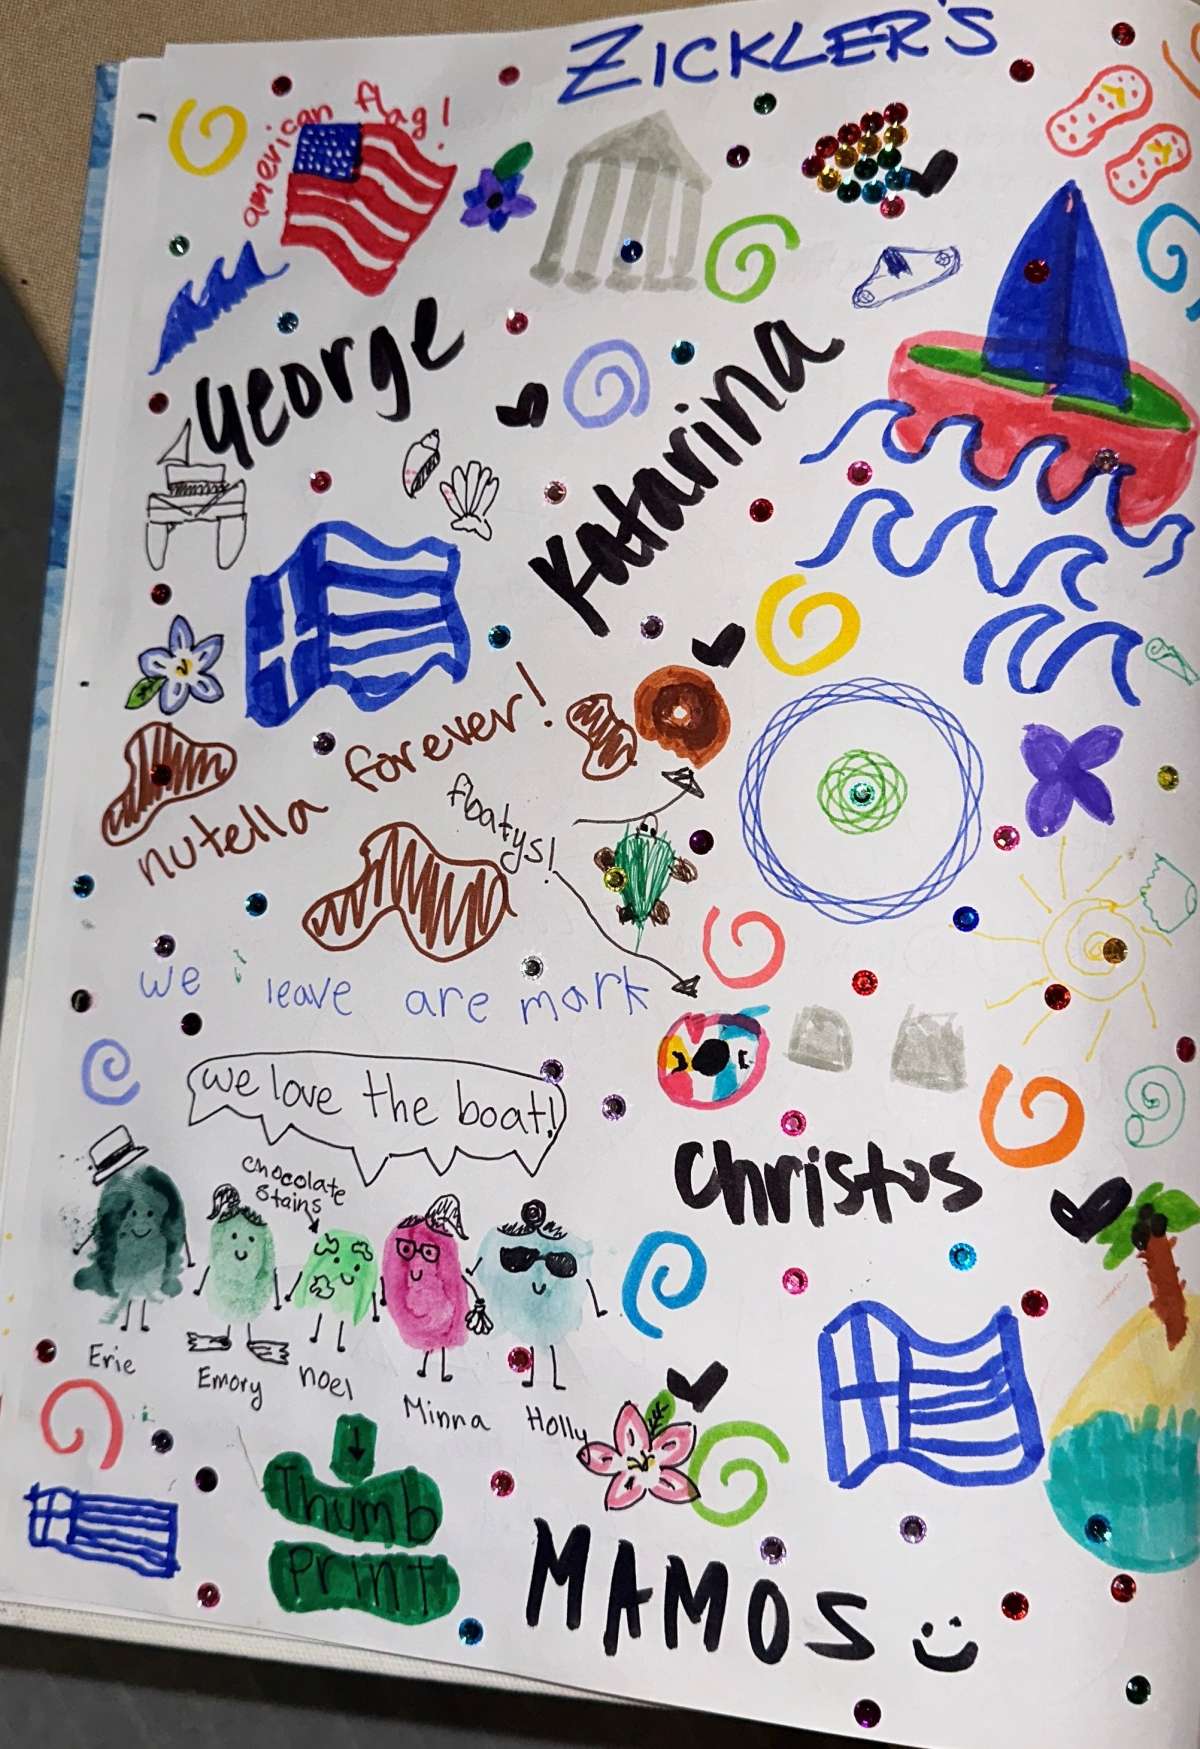 ZICKLER'S
american flag!
George
Katarina
nutella forever!
floatys!
we leave are mark
we love the boat!
chocolate
stains
Christos
Erie
Emory
noel
Minna
Holly
Thumb
print
MAMOS